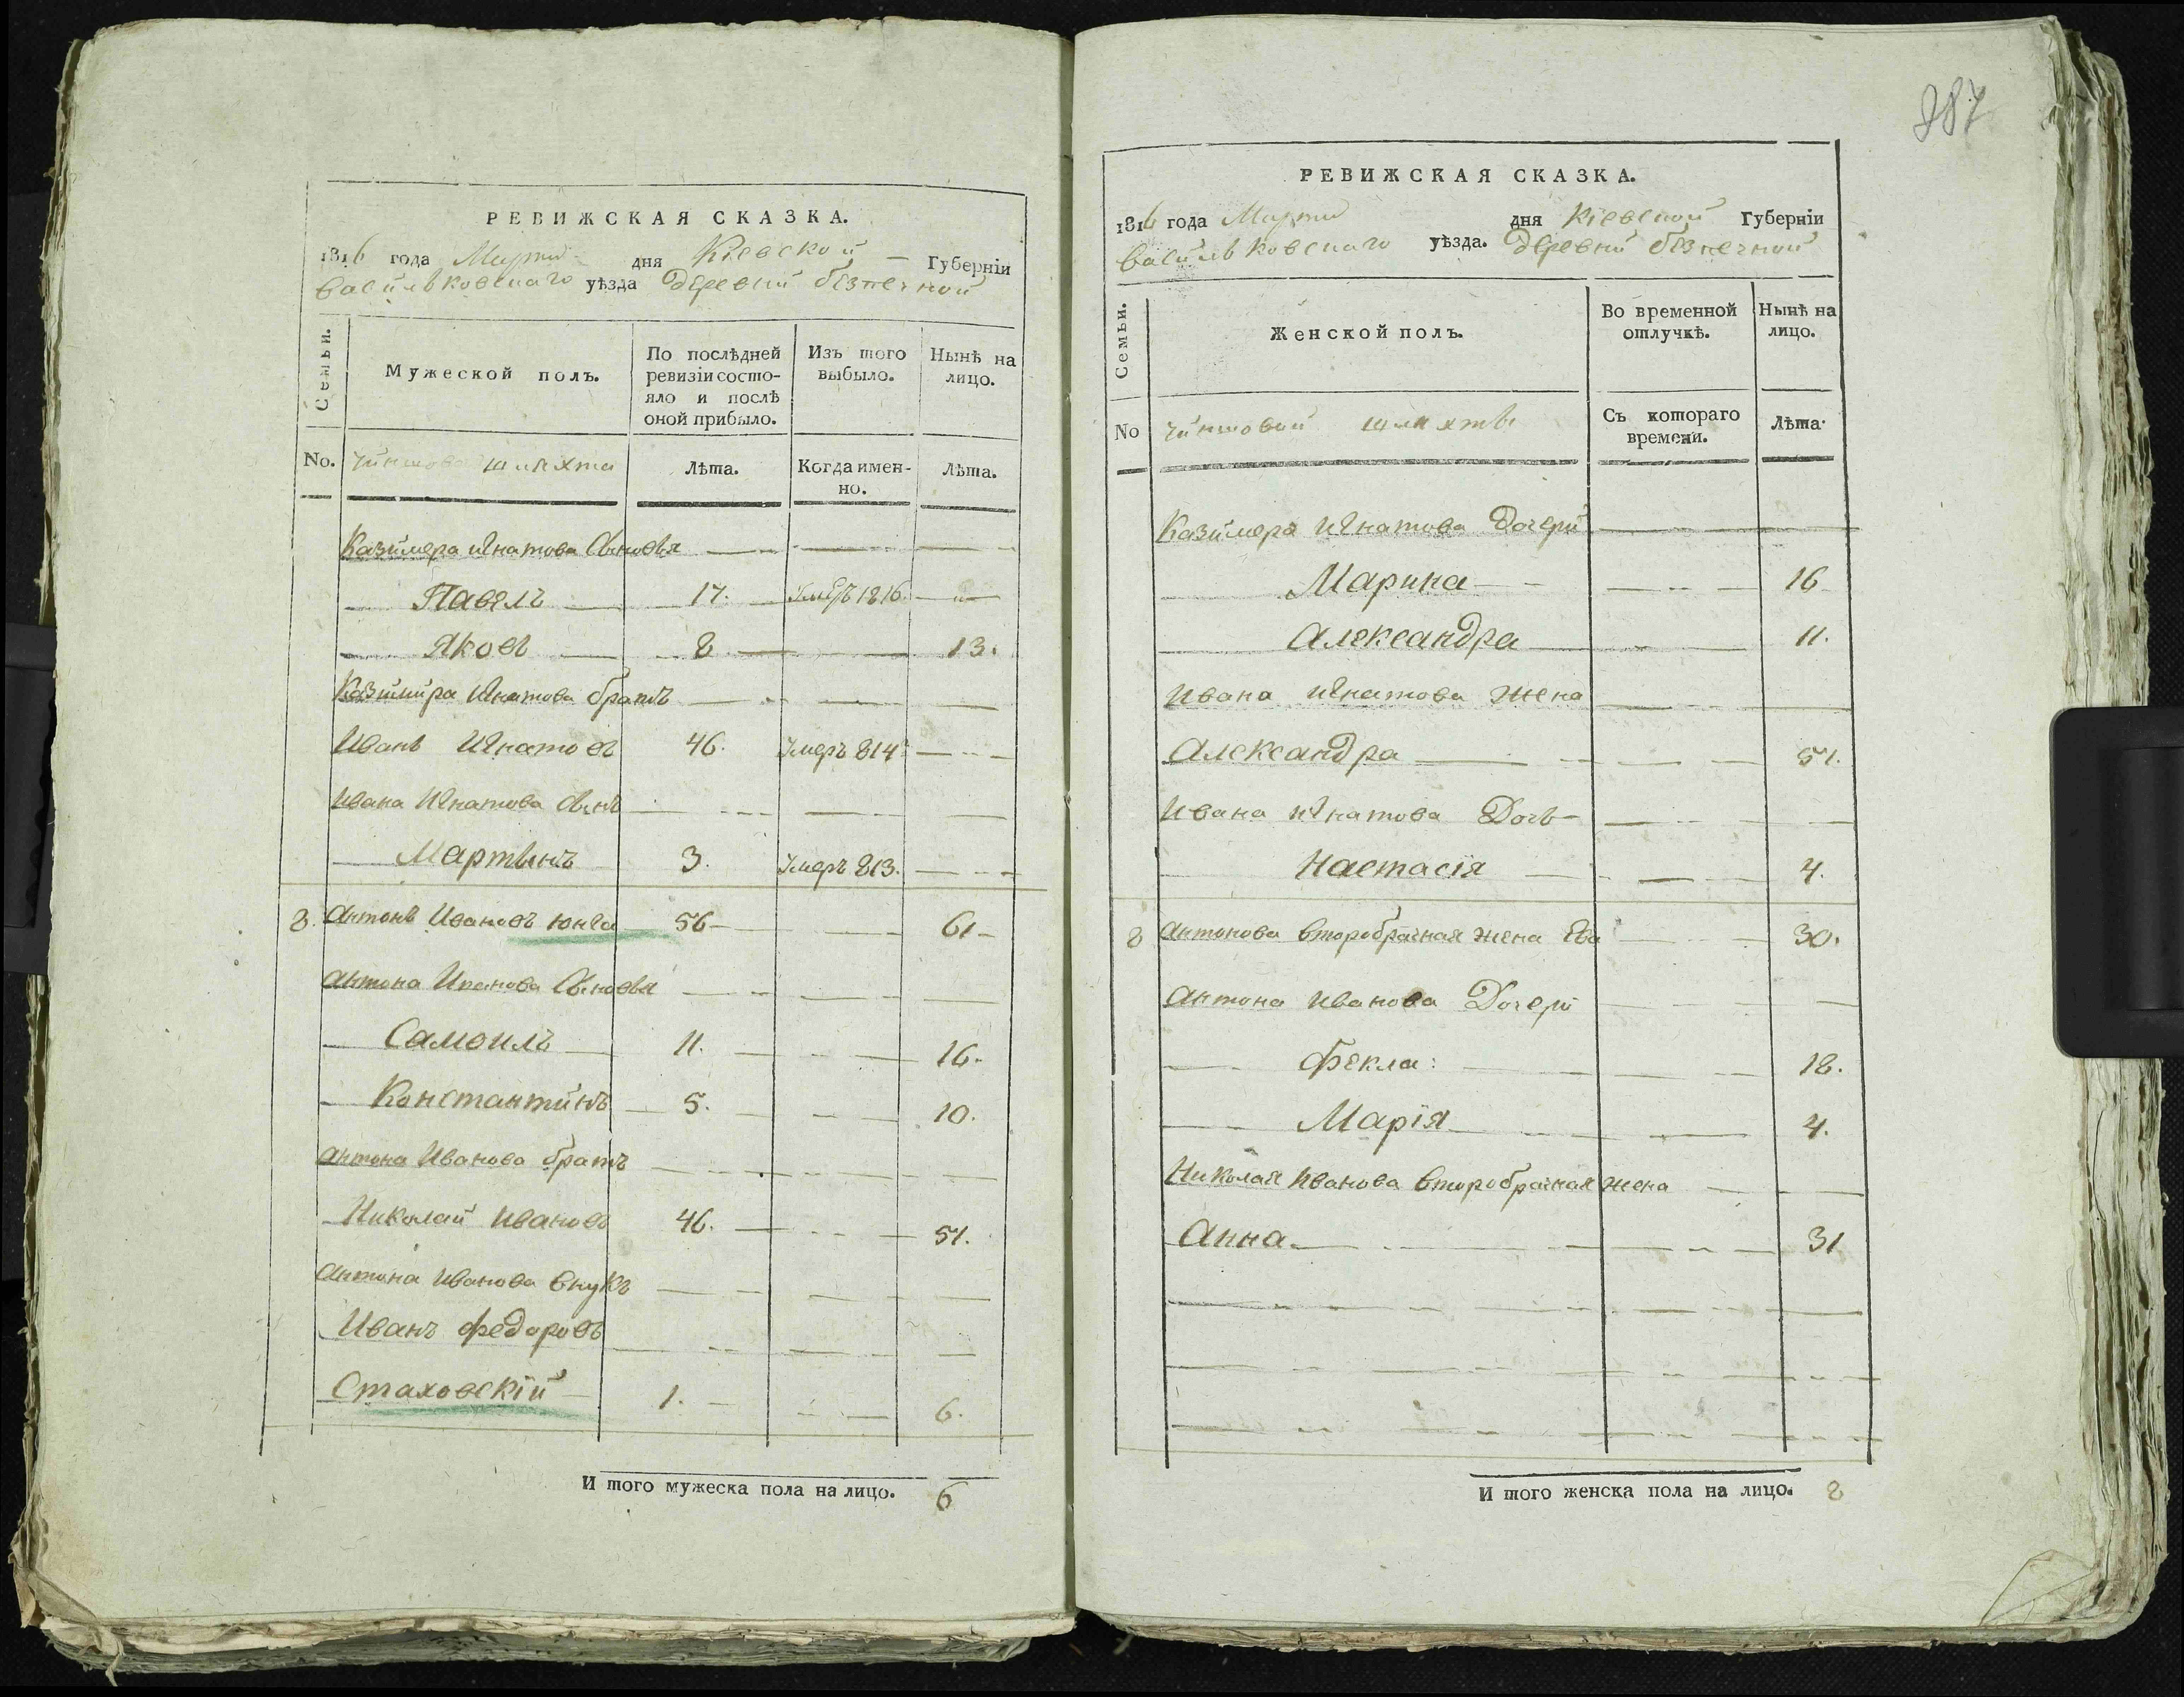 РЕВИЖСКАЯ СКАЗКА.
1816 года Марта дня Кіевской Губерніи
Васильковскаго уѣзда деревни безпечной
Семьи.
Мужеской полъ.
По послѣдней ревизіи состо-
яло и послѣ
оной прибыло.
Изъ того
выбыло.
Нынѣ на
лицо.
No.
Чиншова шляхта
Лѣта.
Когда имен-
но.
Лѣта.
Казимера Игнатова Сыновья
Павелъ 17. Умеръ 1816
Яковъ 8 13.
Казимира Игнатова братъ
Иванъ Игнатовъ 46. Умеръ 814
Ивана Игнатова Сынъ
Мартынъ 3. Умеръ 813.
8. Антонъ Ивановъ Юнга 56 61
Антона Иванова Сыновья
Самоилъ 11. 16.
Константинъ 5. 10.
Антона Иванова братъ
Николай Ивановъ 46. 51.
Антона Иванова внукъ
Иванъ Федоровъ
Стаховскій 1. 6.
И того мужеска пола на лицо. 6
РЕВИЖСКАЯ СКАЗКА.
1816 года Марта дня Кіевской Губерніи
Васильковскаго уѣзда. деревни безпечной
Семьи.
Женской полъ.
Во временной
отлучкѣ.
Нынѣ на
лицо.
No
Чиншовой шляхты
Съ котораго
времени.
Лѣта.
Казимера Игнатова Дочери
Марина 16
Александра 11.
Ивана Игнатова жена
Александра 51.
Ивана Игнатова Дочь
Настасія 4.
8 Антонова второбрачная жена Ева 30.
Антона Иванова Дочери
Фекла: 18.
Марія 4.
Николая Иванова второбрачная жена
Анна 31
И того женска пола на лицо. 8